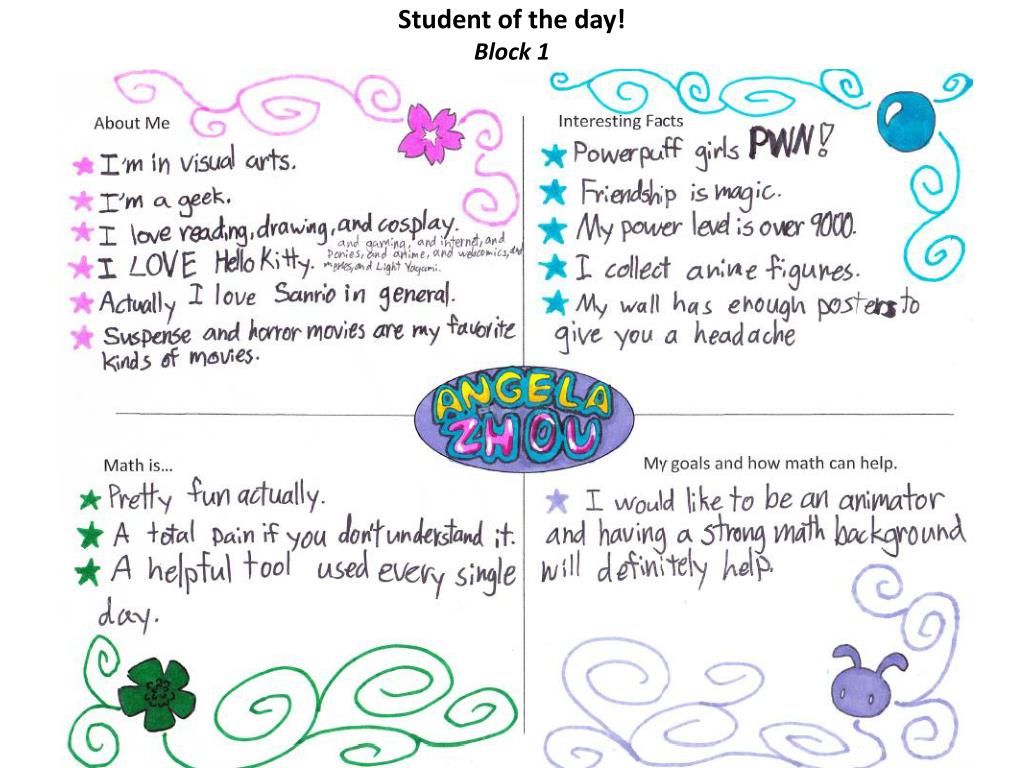 Student of the day!
Block 1
About Me
I'm in visual arts.
I'm a geek.
I love reading, drawing, and cosplay.
and gaming, and internet, and
ponies, and anime, and webcomics, and
movies, and Light Yagami.
I LOVE Hello Kitty.
Actually I love Sanrio in general.
Suspense and horror movies are my favorite
kinds of movies.
Interesting Facts
Powerpuff girls PWN!
Friendship is magic.
My power level is over 9000.
I collect anime figures.
My wall has enough posters to
give you a headache
ANGELA
ZHOU
Math is…
Pretty fun actually.
A total pain if you don't understand it.
A helpful tool used every single
day.
My goals and how math can help.
I would like to be an animator
and having a strong math background
will definitely help.